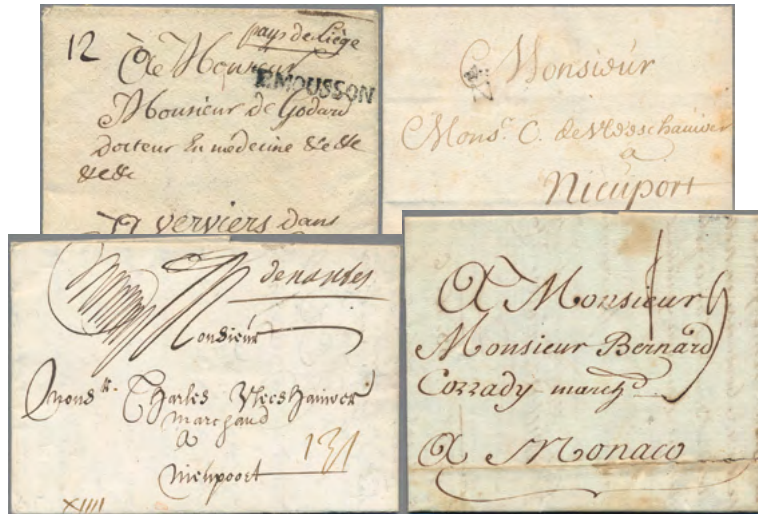 12
pays de Liège
A Monsieur
P. MOUSSON
Monsieur de Godard
docteur En médecine &c &c
&c &c
A verviers dans
A Monsieur
Mons.r C. de
a
Nieuport
de nantes
Monsieur
Mons.r Charles Vleeshauwer
marchand
a
Nieupoort
XIIII
A Monsieur
Monsieur Bernard
Cozzady march.d
A Monaco